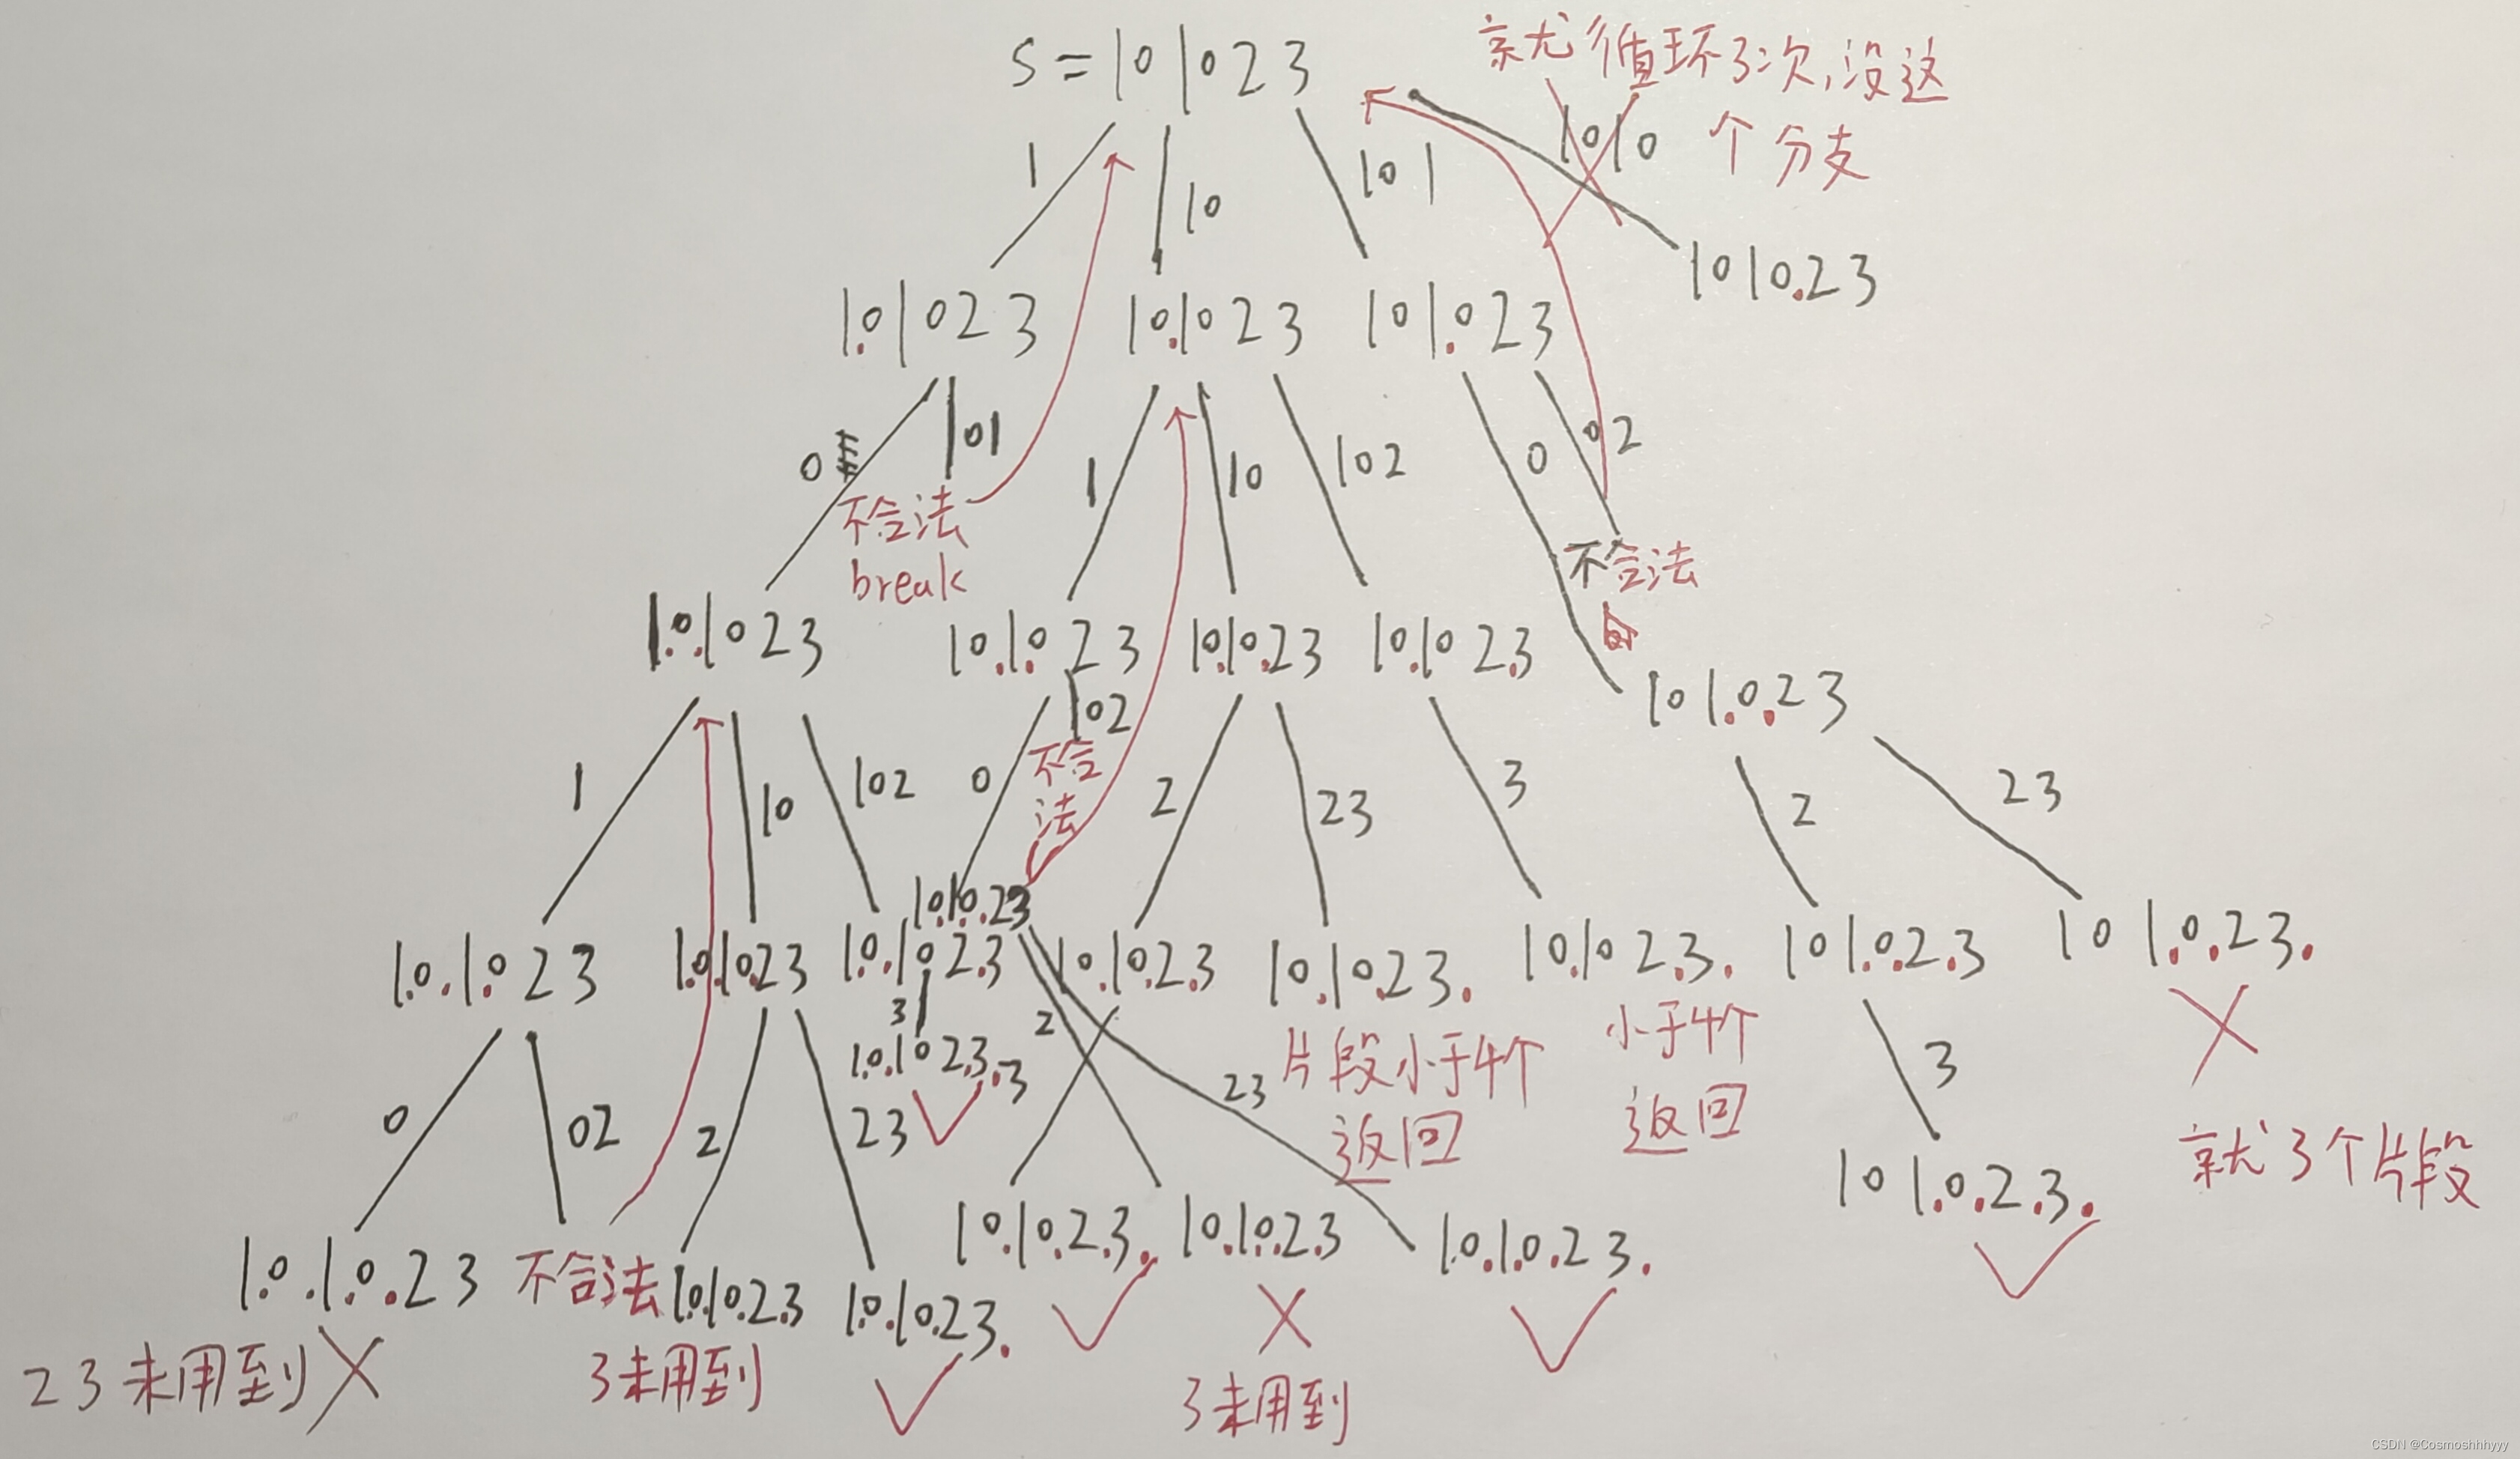 S = 101023
就尤循环3次,没这
个分支
1
10
101
1010
1010.23
1.01023
10.1023
101.023
0
101
不合法
break
1
10
102
0
02
不合法
1.0.1023
10.1.023
10.10.23
10.102.3
101.0.23
1
10
102
0
02
不合
法
2
23
3
2
23
10.1.0.23
1.0.1.023
1.0.10.23
1.0.102.3
10.10.2.3
10.10.23.
10.102.3.
101.0.2.3
101.0.23.
3
1.0.102.3.3
2
23
片段小于4个
返回
小于4个
返回
3
就尤3个片段
0
02
2
23
1.0.1.0.23
不合法
1.0.10.2.3
1.0.10.23.
10.10.2.3.
10.1.0.2.3
10.1.0.23.
101.0.2.3.
23未用到
3未用到
3未用到
CSDN @Cosmoshhhyyy